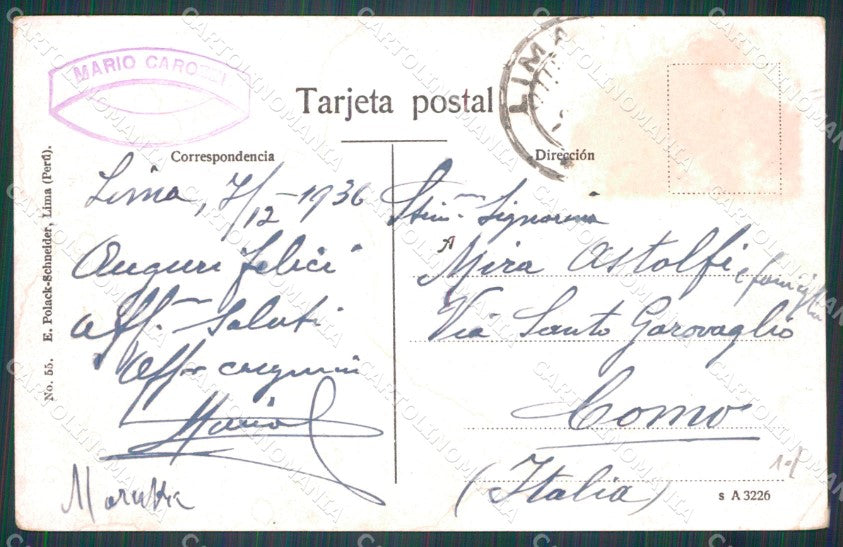 MARIO CARO
LIMA
Tarjeta postal
Correspondencia
Dirección
Lima, 7/12-1936
Auguri felici
Aff. Saluti
Mario
Stim. Signorina
A
Mira Astolfi e famiglia
Via Santo Garovaglio
Como
(Italia)
s A 3226
No. 55. E. Polack-Schneider, Lima (Perú).
CARTOLINOMANIA